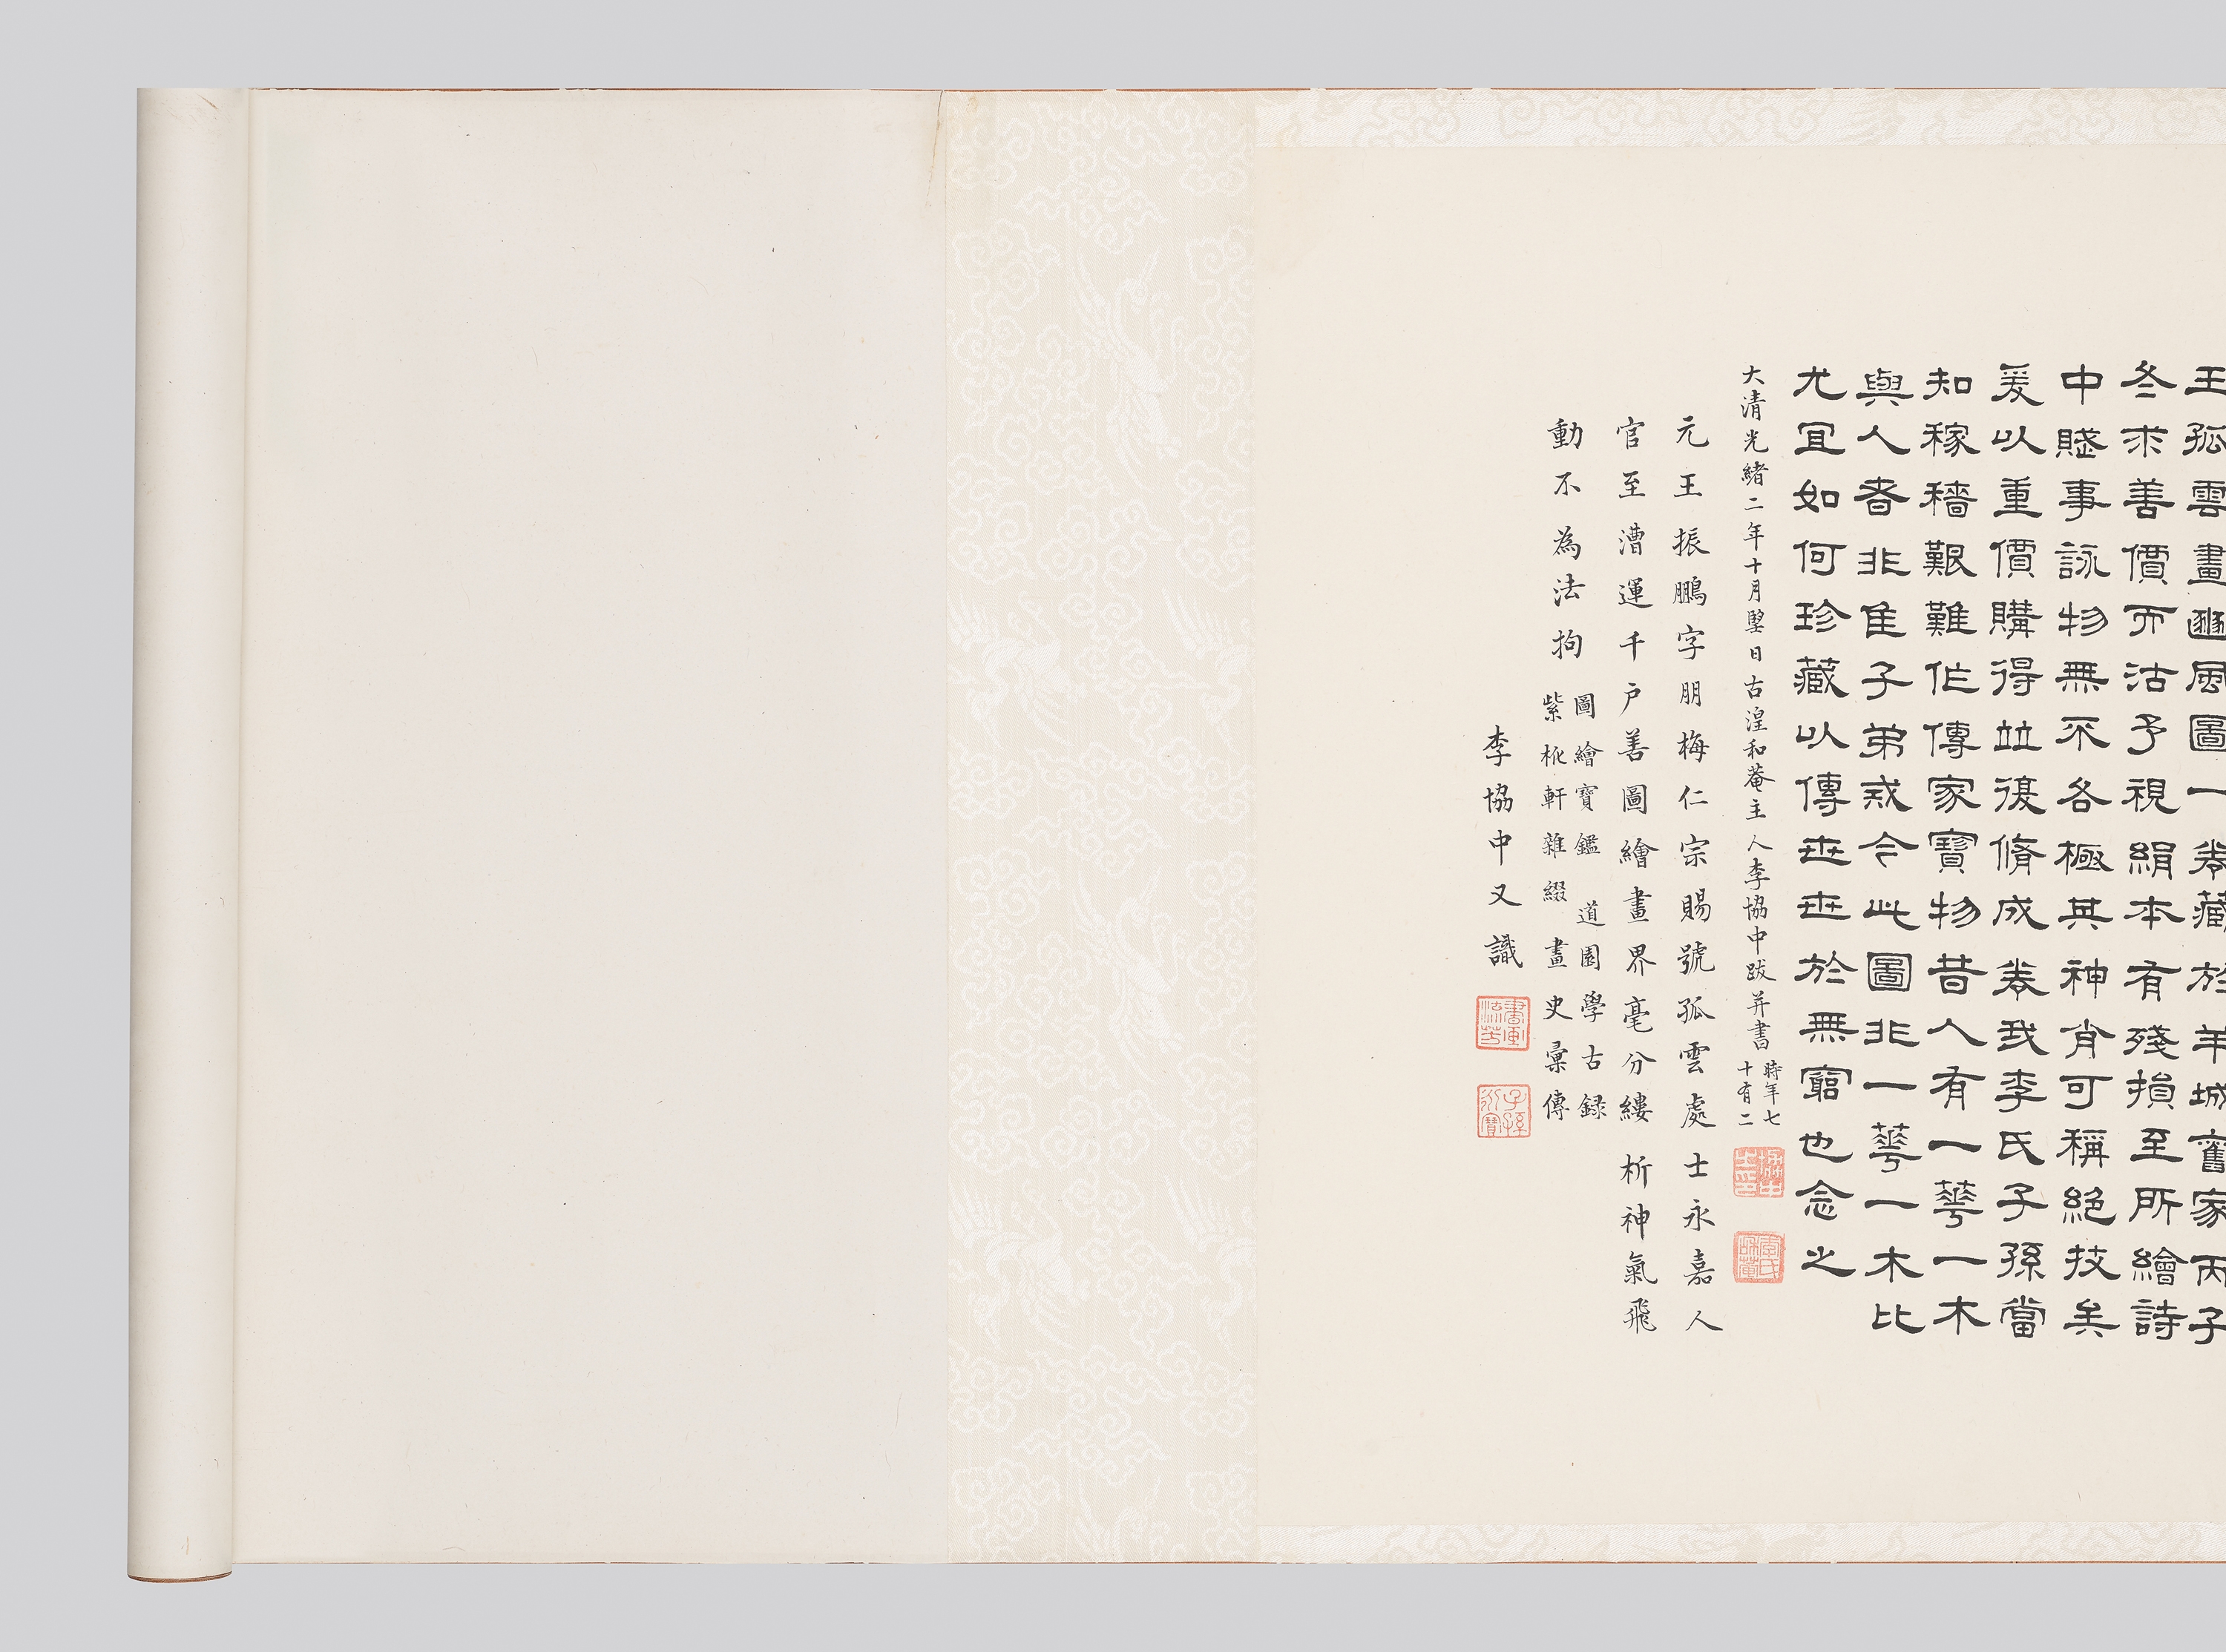 王孤雲畫豳風圖一卷藏於羊城舊家丙子
冬求善價而沽予視絹本有殘損至所繪詩
中賦事詠物無不各極其神肖可稱絕技矣
爰以重價購得並復脩成卷我李氏子孫當
知稼穡艱難作傳家寶物昔人有一華一木
與人者非佳子弟戒今此圖非一華一木比
尤宜如何珍藏以傳世世於無窮也念之
大清光緒二年十月朢日古湟和菴主人李協中跋并書
時年七
十有二
協中之印
李氏和菴
元王振鵬字朋梅仁宗賜號孤雲處士永嘉人
官至漕運千戶善圖繪畫界毫分縷析神氣飛
動不為法拘
圖繪寶鑑 道園學古録
紫桃軒雜綴 畫史彙傳
李協中又識
書画流芳
子孫永寶